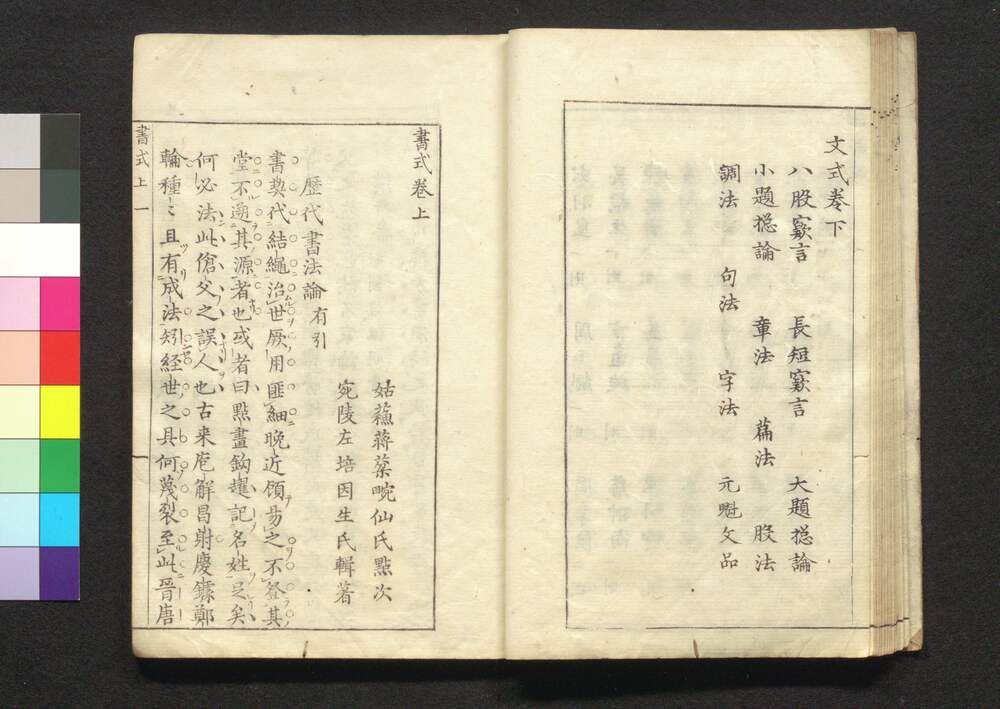 文式卷下
八股窾言 長短窾言 大題摠論
小題摠論 章法 篇法 股法
調法 句法 字法 元魁文品
書式卷上
姑蘓蔣棻畹仙氏點次
宛陵左培因生氏輯著
歷代書法論 有引
書契代結繩治世厥用匪細晚近傾昜之不登其
堂不遡其源者也或者曰點畫鈎趯記名姓足矣
何必法此傖父之誤人也古来庖解昌射慶鐻鄭
輪種〻且有成法矧経世之具何蔑裂至此晉唐
書式上 一